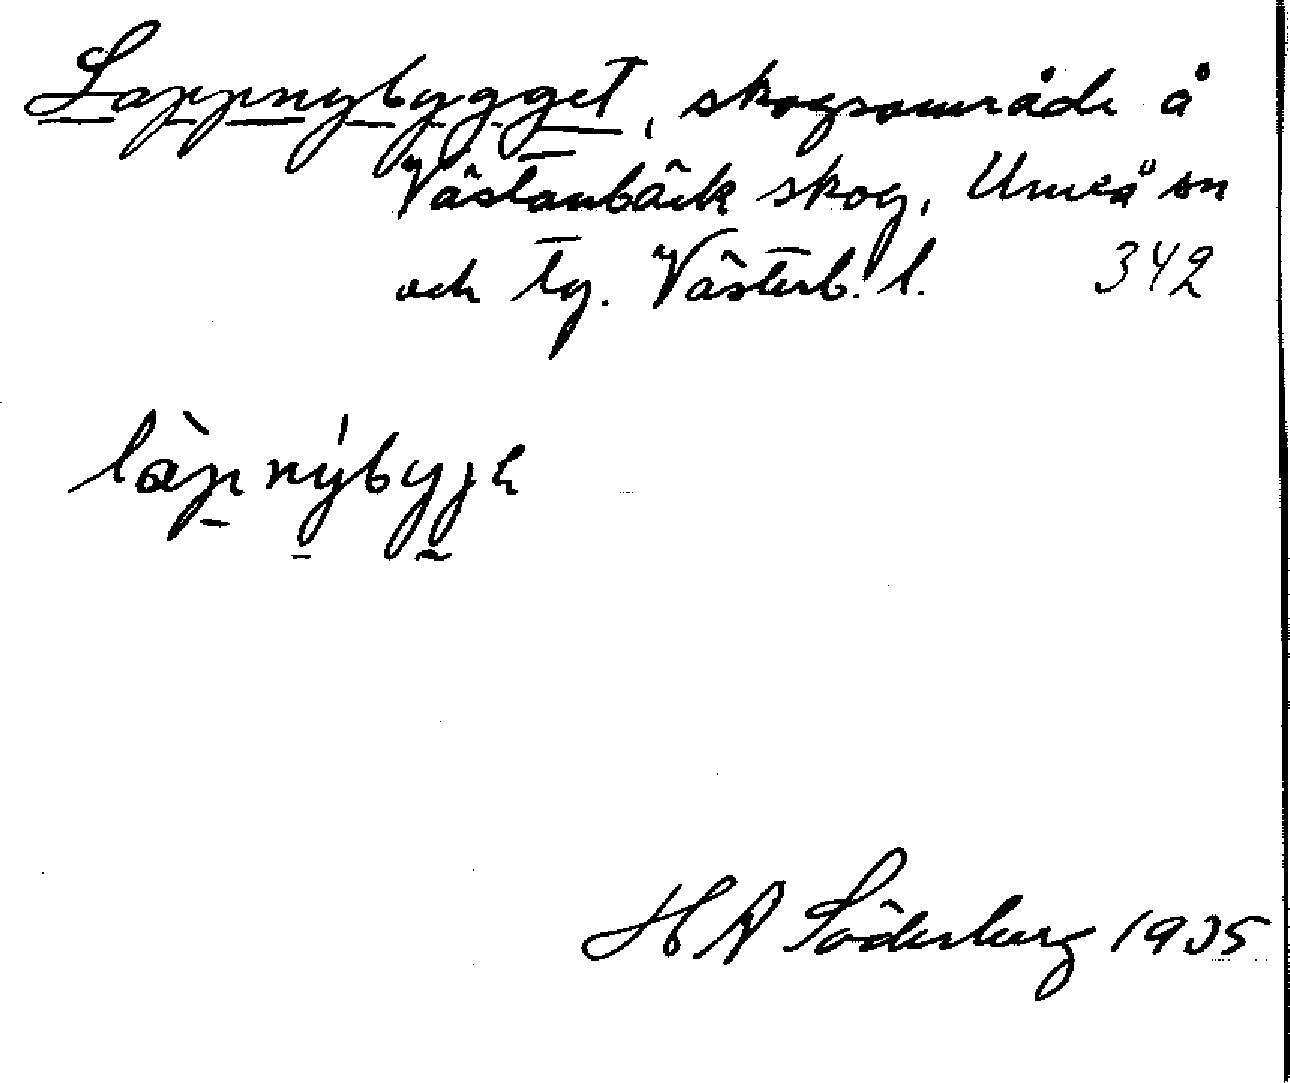 Lappnybygget, skogsområde å
Västanbäck skog, Umeå sn
och tg. Västerb. l. 342
làpnýbyʒɛ
H A Söderberg 1935